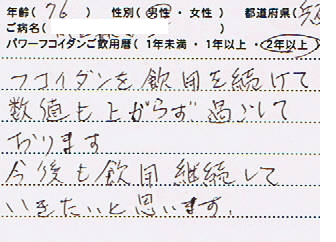 年齢( 76 ) 性別( 男性 ・ 女性 ) 都道府県(
ご病名(
パワーフコイダンご飲用暦 ( 1年未満 ・ 1年以上 ・ 2年以上 )
フコイダンを飲用を続けて
数値も上がらず過ごして
おります
今後も飲用継続して
いきたいと思います.